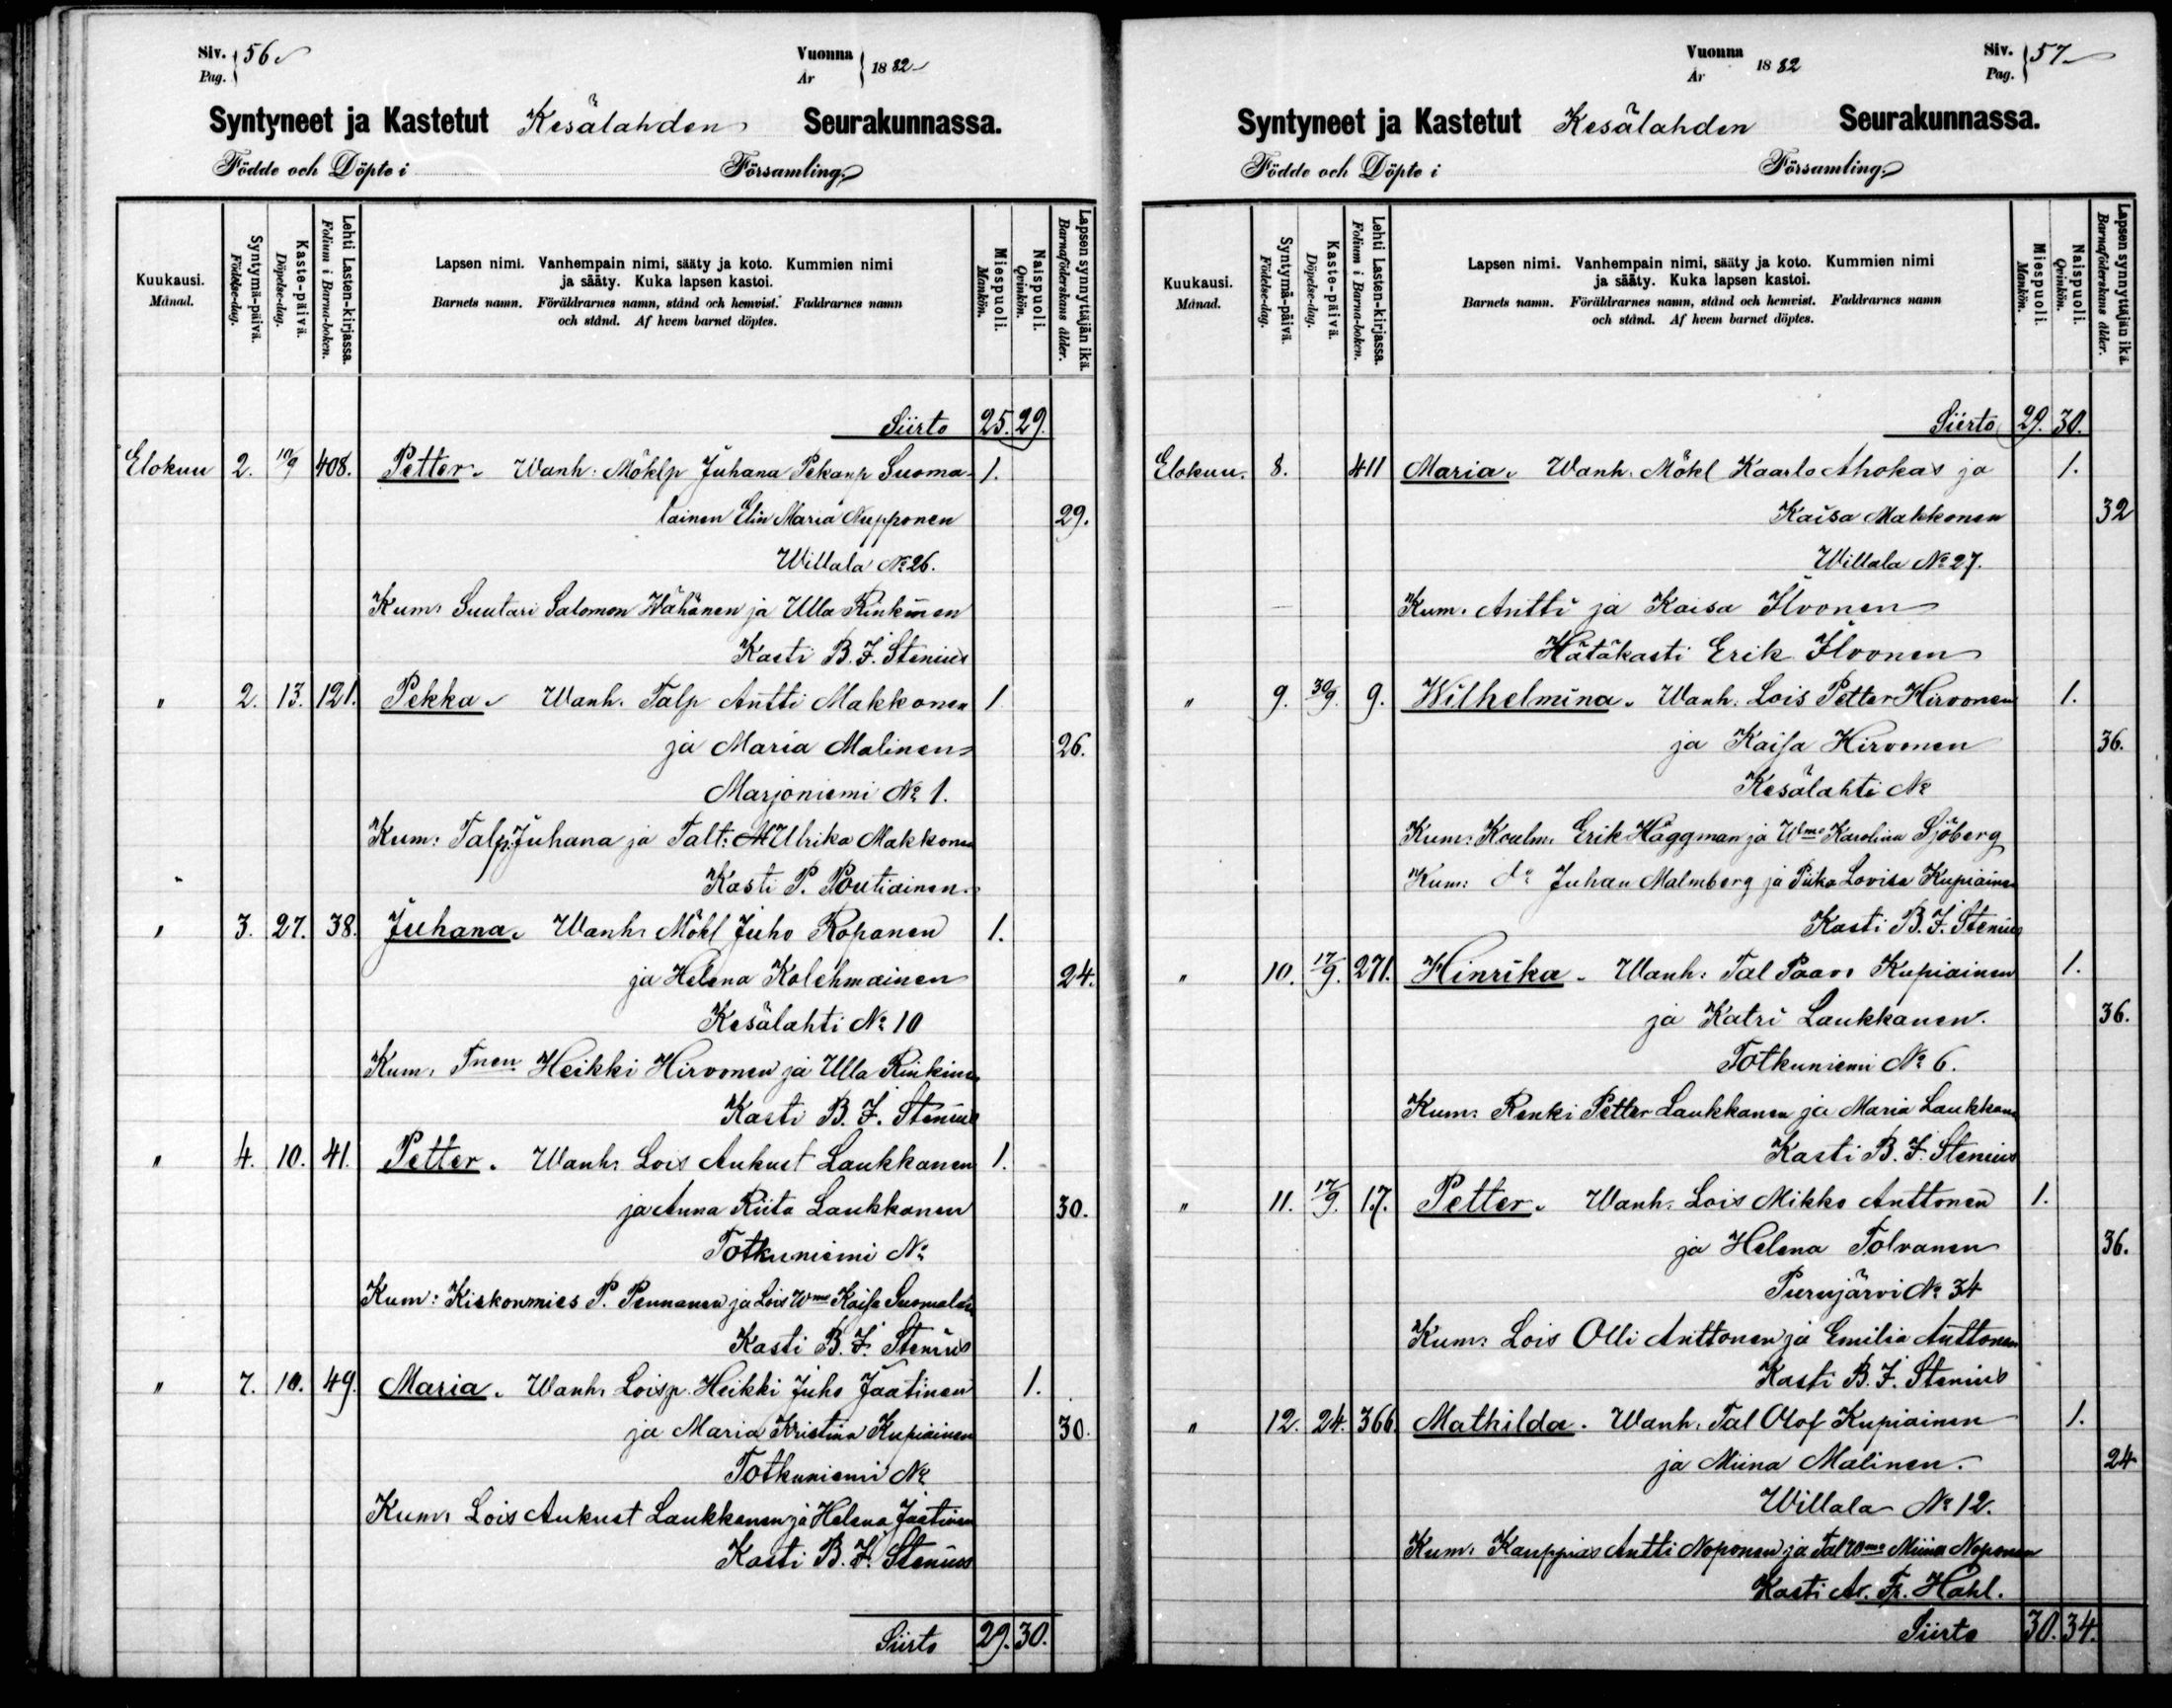 Siv. Pag. 56
Vuonna År 1882
Syntyneet ja Kastetut Kesälahden Seurakunnassa.
Födde och Döpte i Församling.
Kuukausi. Månad.
Syntymä-päivä. Födelse-dag.
Kaste-päivä. Döpelse-dag.
Lehti Lasten-kirjassa. Folium i Barna-boken.
Lapsen nimi. Vanhempain nimi, sääty ja koto. Kummien nimi
ja sääty. Kuka lapsen kastoi.
Barnets namn. Föräldrarnes namn, stånd och hemvist. Faddrarnes namn
och stånd. Af hvem barnet döptes.
Miespuoli. Mankön.
Naispuoli. Qvinkön.
Lapsen synnyttäjän ikä. Barnaföderskans ålder.
Siirto 25. 29.
Elokuu 2. 10/9 408. Petter. Wanh: Möklp Juhana Pekanp Suoma- 1.
lainen Elin Maria Nupponen 29.
Willala No 26.
Kum: Suutari Salomon Wähänen ja Ulla Rinkinen
Kasti B. F. Stenius
" 2. 13. 121. Pekka. Wanh. Talp Antti Makkonen 1.
ja Maria Malinen 26.
Marjoniemi No 1.
Kum: Talp. Juhana ja Talt: Ulrika Makkonen
Kasti P. Poutiainen.
" 3. 27. 38. Juhana. Wanh: Mökl Juho Roponen 1.
ja Helena Kolehmainen 24.
Kesälahti No 10
Kum. Heikki Hirvonen ja Ulla Rinkinen
Kasti B. F. Stenius
" 4. 10. 41. Petter. Wanh: Lois Aukust Laukkanen 1.
ja Anna Riita Laukkanen 30.
Totkuniemi No
Kum: P. Pennanen ja Lois Wmo Kaisa Suomalain
Kasti B. F. Stenius
" 7. 10. 49. Maria. Wanh: Loisp. Heikki Juho Jaatinen 1.
ja Maria Kristina Kupiainen 30.
Totkuniemi No
Kum: Lois Aukust Laukkanen ja Helena Jaatinen
Kasti B. F. Stenius
Siirto 29. 30.
Vuonna År 1882
Siv. Pag. 57
Syntyneet ja Kastetut Kesälahden Seurakunnassa.
Födde och Döpte i Församling.
Kuukausi. Månad.
Syntymä-päivä. Födelse-dag.
Kaste-päivä. Döpelse-dag.
Lehti Lasten-kirjassa. Folium i Barna-boken.
Lapsen nimi. Vanhempain nimi, sääty ja koto. Kummien nimi
ja sääty. Kuka lapsen kastoi.
Barnets namn. Föräldrarnes namn, stånd och hemvist. Faddrarnes namn
och stånd. Af hvem barnet döptes.
Miespuoli. Mankön.
Naispuoli. Qvinkön.
Lapsen synnyttäjän ikä. Barnaföderskans ålder.
Siirto 29. 30.
Elokuu. 8. 411 Maria. Wanh. Mökl Kaarlo Ahokas ja 1.
Kaisa Makkonen 32
Willala No 27.
Kum. Antti ja Kaisa Ilvonen
Hätäkasti Erik Ilvonen
" 9. 30/9. 9. Wilhelmina. Wanh: Lois Petter Hirvonen 1.
ja Kaisa Hirvonen 36.
Kesälahti No
Kum: Koulm. Erik Häggman ja Wmo Karolina Sjöberg
Kum: do Juhan Malmberg ja Piika Lovisa Kupiainen
Kasti B. F. Stenius
" 10. 17/9. 271. Hinrika. Wanh: Tal Paavo Kupiainen 1.
ja Katri Laukkanen. 36.
Totkuniemi No 6.
Kum: Renki Petter Laukkanen ja Maria Laukkanen
Kasti B. F. Stenius
" 11. 17/9. 17. Petter. Wanh. Lois Mikko Anttonen 1.
ja Helena Tolvanen 36.
Purujärvi No 34
Kum: Lois Olli Anttonen ja Emilia Anttonen
Kasti B. F. Stenius
" 12. 24. 366. Mathilda. Wanh. Tal Olof Kupiainen 1.
ja Miina Malinen. 24
Willala No 12.
Kum. Kauppias Antti Noponen ja Tal Wmo Miina Noponen
Kasti Ar. Fr. Hahl.
Siirto 30. 34.